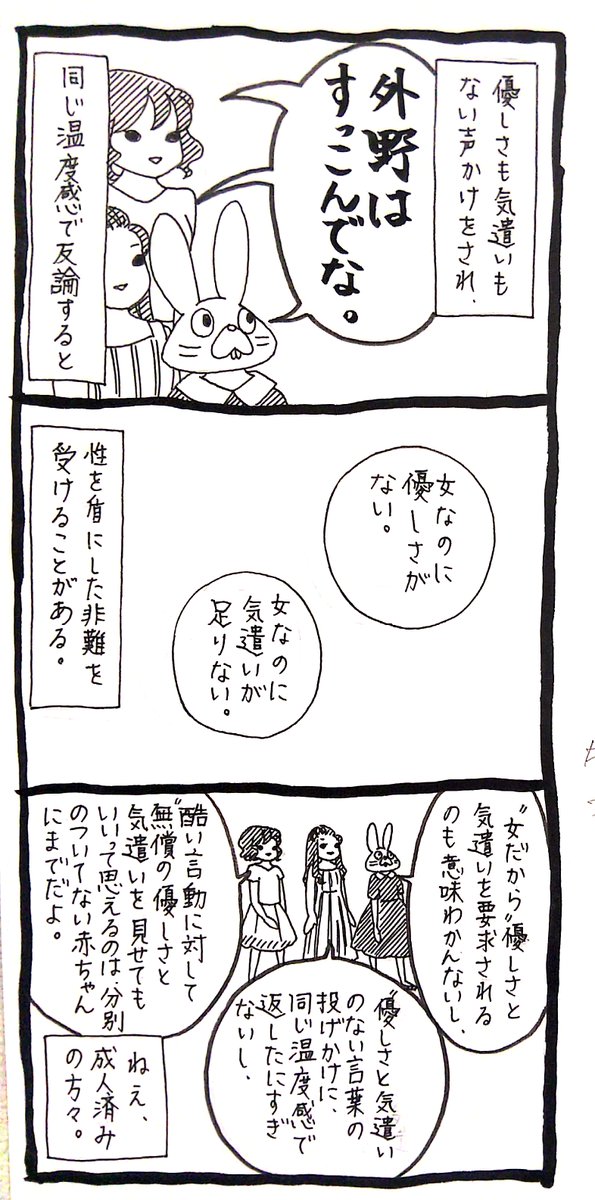 優しさも気遣いも
ない声かけをされ、
外野は
すっこんでな。
同じ温度感で反論すると
女なのに
優しさが
ない。
女なのに
気遣いが
足りない。
性を盾にした非難を
受けることがある。
“女だから”優しさと
気遣いを要求される
のも意味わかんないし、
“優しさと気遣い
のない言葉の
投げかけに、
同じ温度感で
返したにすぎ
ないし、
酷い言動に対して
“無償の優しさと
気遣いを見せても
いいって思えるのは分別
のついてない赤ちゃん
にまでだよ。
ねえ、
成人済み
の方々。